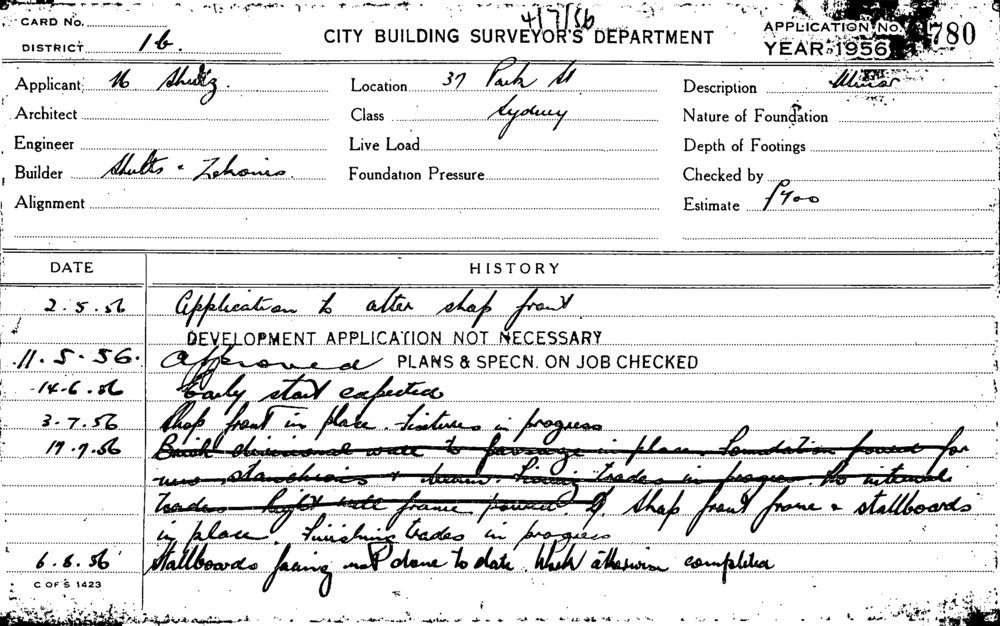 4/7/56
CARD No.
DISTRICT 16.
CITY BUILDING SURVEYOR'S DEPARTMENT
APPLICATION No. 780
YEAR 1956
Applicant
Location 37 Park St
Description Minor
Architect
Class Sydney
Nature of Foundation
Engineer
Live Load
Depth of Footings
Builder
Foundation Pressure
Checked by
Alignment
Estimate £400
DATE HISTORY
2.5.56 Application to alter shop front
DEVELOPMENT APPLICATION NOT NECESSARY
11.5.56. Approved PLANS & SPECN. ON JOB CHECKED
14.6.56 Early start expected
3.7.56 Shop front in place. Fixtures in progress
17.7.56 Brick divisional wall to passage in place. Foundation poured for
new stanchions trades in progress to internal
trades frame poured. Shop front frame & stallboards
in place. Finishing trades in progress
6.8.56 Stallboards facing not done to date. Work otherwise completed
C OF S 1423